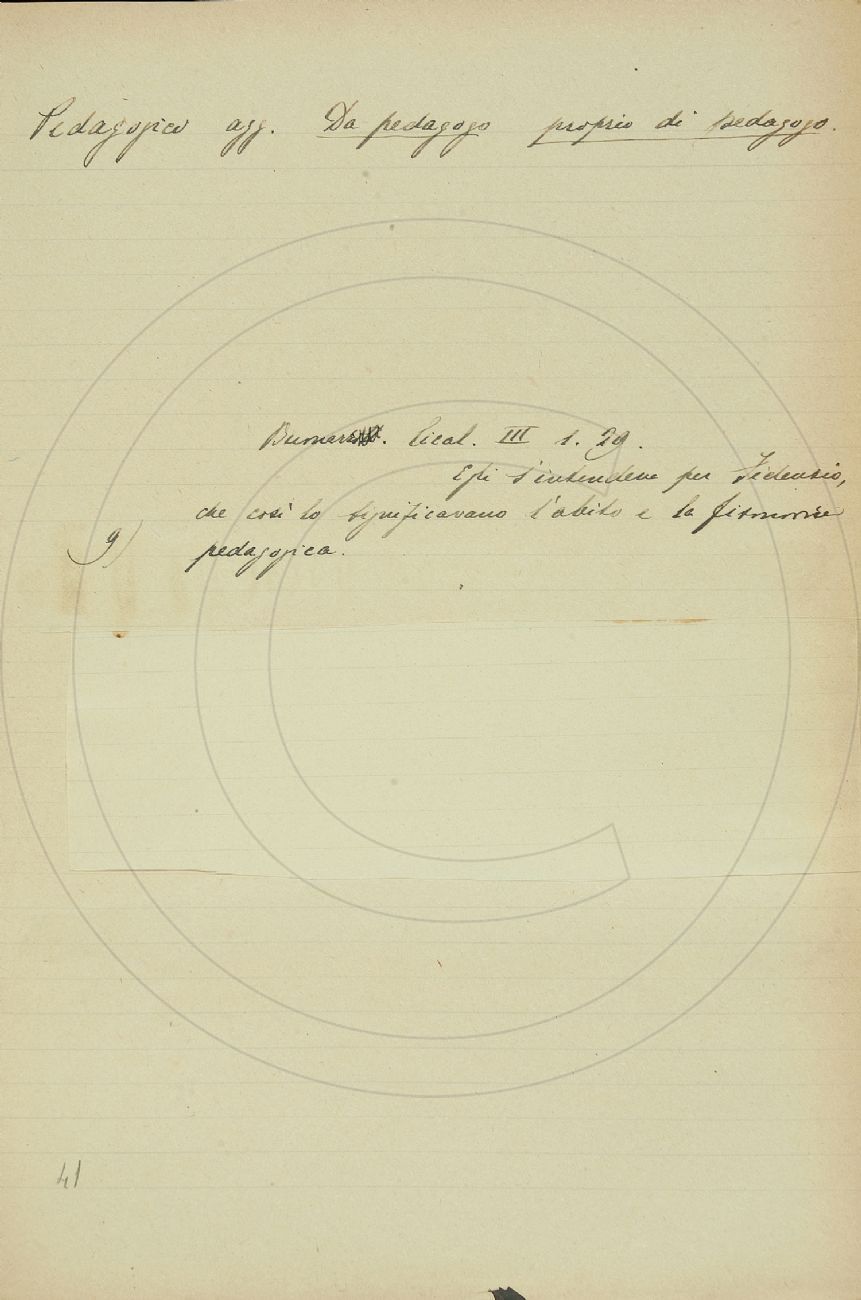 Pedagogico agg. Da pedagogo proprio di pedagogo.
Buonarr. Cical. III 1. 29.
Egli s'intendeva per Fidenzio,
che così lo significavano l'abito e la fisonomia
9) pedagogica.
41